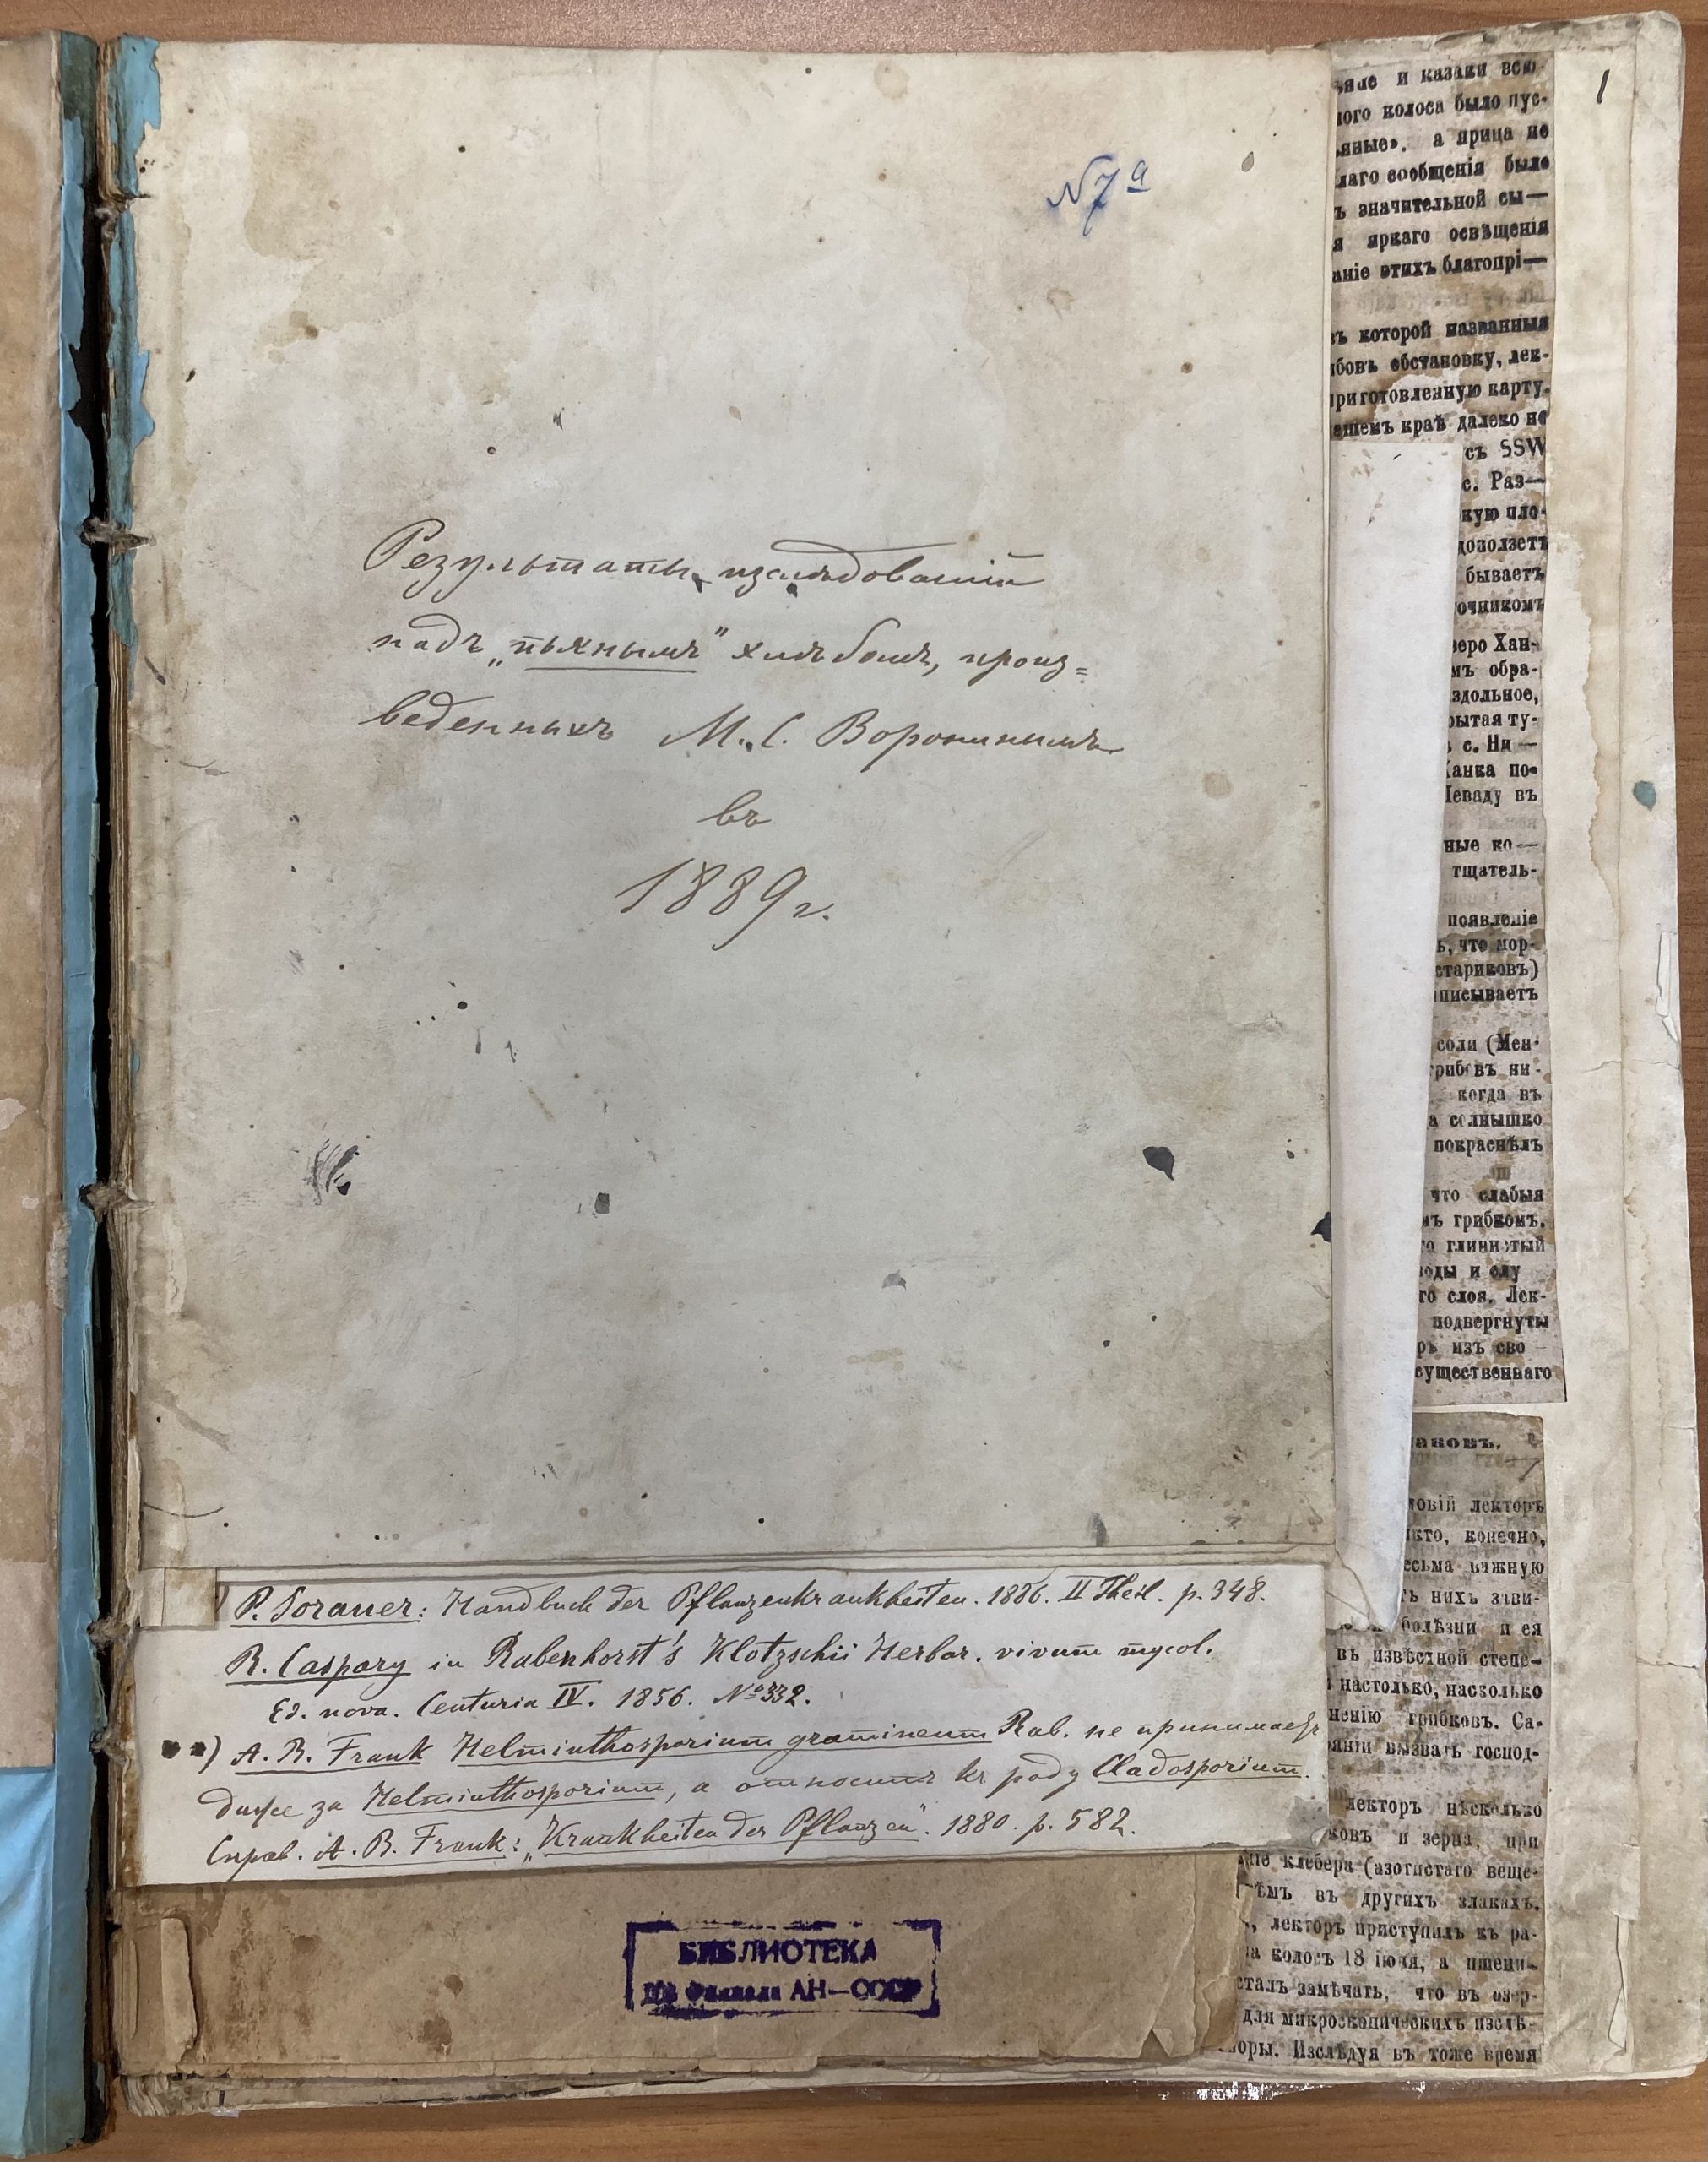 1
N 7 а
Результаты изслѣдованій
надъ „пьянымъ” хлѣбомъ, произ=
веденныхъ М. С. Воронинымъ
въ
1889 г.
P. Sorauer: Handbuch der Pflanzenkrankheiten. 1886. II Theil. p. 348.
R. Caspary in Rabenhorst's Klotzschii Herbar. vivum mycol.
Ed. nova. Centuria IV. 1856. № 332.
A. B. Frank Helminthosporium gramineum Rab. не принимаетъ
даже за Helminthosporium, а относитъ къ роду Cladosporium.
Справ. A. B. Frank: „Krankheiten der Pflanzen”. 1880. p. 582.
БИБЛИОТЕКА
Филиала АН—СССР
и казаки
ного колоса было пус-
яные». а ярица не
лаго сообщенія было
ъ значительной сы—
я яркаго освѣщенія
аніе этихъ благопрі—
въ которой названныя
обстановку, лек-
приготовленную карту.
краѣ далеко не
съ SSW
с. Раз—
кую пло-
доползетъ
бываетъ
очникомъ
зеро Хан-
мъ обра-
здольное,
рытая ту-
с. Ни—
Ханка по-
Неваду въ
ные ко—
тщатель-
появленіе
ь, что мор-
стариковъ)
писываетъ
соли (Мен-
грибовъ ни-
когда въ
а солнышко
покраснѣлъ
что слабыя
мъ грибкомъ.
го глинистый
воды и
го слоя. Лек-
подвергнуты
ръ изъ сво
существеннаго
аковъ.
ловій лекторъ
икто, конечно,
весьма важную
нихъ зави-
болѣзни и ея
въ извѣстной степе-
настолько, насколько
ненію грибковъ. Са-
яніи вызвать господ-
лекторъ нѣсколько
ковъ и зерна, при
ніе клебера (азотистаго веще-
ѣмъ въ другихъ злакахъ.
, лекторъ приступилъ къ ра-
а колосъ 18 іюля, а пшени-
сталъ замѣчать, что въ озер-
для микроскопическихъ изслѣ-
поры. Изслѣдуя въ тоже время